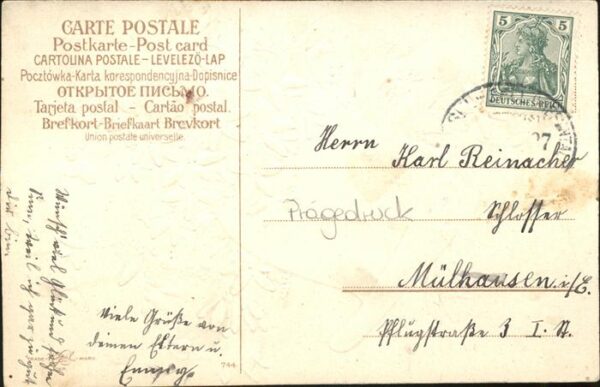 CARTE POSTALE
Postkarte-Post card
CARTOLINA POSTALE-LEVELEZŐ-LAP
Pocztówka-Karta korespondencyjna-Dopisnice
ОТКРЫТОЕ ПИСЬМО.
Tarjeta postal - Cartão postal.
Brefkort-Briefkaart Brevkort
Union postale universelle.
5 5
DEUTSCHES REICH
07
Herrn Karl Reinacher
Schlosser
Mülhausen i/E.
Pflugstraße 3 I. St.
Prägedruck
viele Grüße von
deinen Eltern u.
744